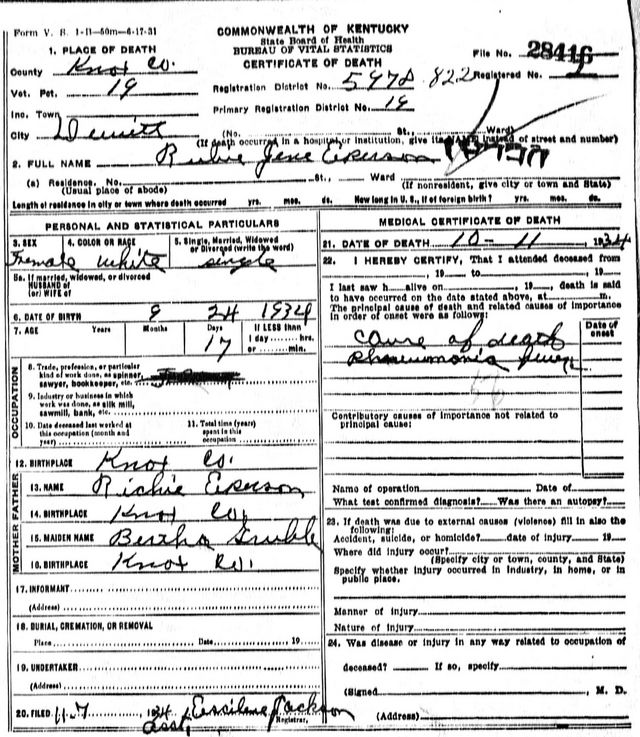 Form V. S. 1-B—50m—6-17-31
COMMONWEALTH OF KENTUCKY
State Board of Health
BUREAU OF VITAL STATISTICS
CERTIFICATE OF DEATH
File No. 28416
Registered No.
1. PLACE OF DEATH
County Knox Co.
Vot. Pct. 19
Inc. Town
City Dewitt
Registration District No. 5978 822
Primary Registration District No. 19
(No. St., Ward)
(If death occurred in a hospital or institution, give its NAME instead of street and number)
2. FULL NAME Richie Jene Eperson
(a) Residence. No. St., Ward
(Usual place of abode) (If nonresident, give city or town and State)
Length of residence in city or town where death occurred yrs. mos. ds. How long in U. S., if of foreign birth? yrs. mos. ds.
PERSONAL AND STATISTICAL PARTICULARS
3. SEX Female
4. COLOR OR RACE white
5. Single, Married, Widowed or Divorced (write the word) single
5a. If married, widowed, or divorced
HUSBAND of
(or) WIFE of
6. DATE OF BIRTH 9 24 1934
7. AGE Years Months Days 17 If LESS than 1 day hrs. or min.
OCCUPATION
8. Trade, profession, or particular kind of work done, as spinner, sawyer, bookkeeper, etc.
9. Industry or business in which work was done, as silk mill, sawmill, bank, etc.
10. Date deceased last worked at this occupation (month and year)
11. Total time (years) spent in this occupation
12. BIRTHPLACE Knox Co.
FATHER
13. NAME Richie Eperson
14. BIRTHPLACE Knox Co.
MOTHER
15. MAIDEN NAME Bertha
16. BIRTHPLACE Knox Co.
17. INFORMANT
(Address)
18. BURIAL, CREMATION, OR REMOVAL
Place Date 19
19. UNDERTAKER
(Address)
20. FILED 11-7 1934 Jackson
asst Registrar.
MEDICAL CERTIFICATE OF DEATH
21. DATE OF DEATH 10-11 1934
22. I HEREBY CERTIFY, That I attended deceased from
, 19 to , 19
I last saw h alive on , 19 , death is said
to have occurred on the date stated above, at m.
The principal cause of death and related causes of importance
in order of onset were as follows:
Date of onset
cause of death
Phneumonia fever
Contributory causes of importance not related to
principal cause:
Name of operation Date of
What test confirmed diagnosis? Was there an autopsy?
23. If death was due to external causes (violence) fill in also the
following:
Accident, suicide, or homicide? date of injury 19
Where did injury occur?
(Specify city or town, county, and State)
Specify whether injury occurred in industry, in home, or in
public place.
Manner of injury
Nature of injury
24. Was disease or injury in any way related to occupation of
deceased? If so, specify
(Signed , M. D.
(Address)